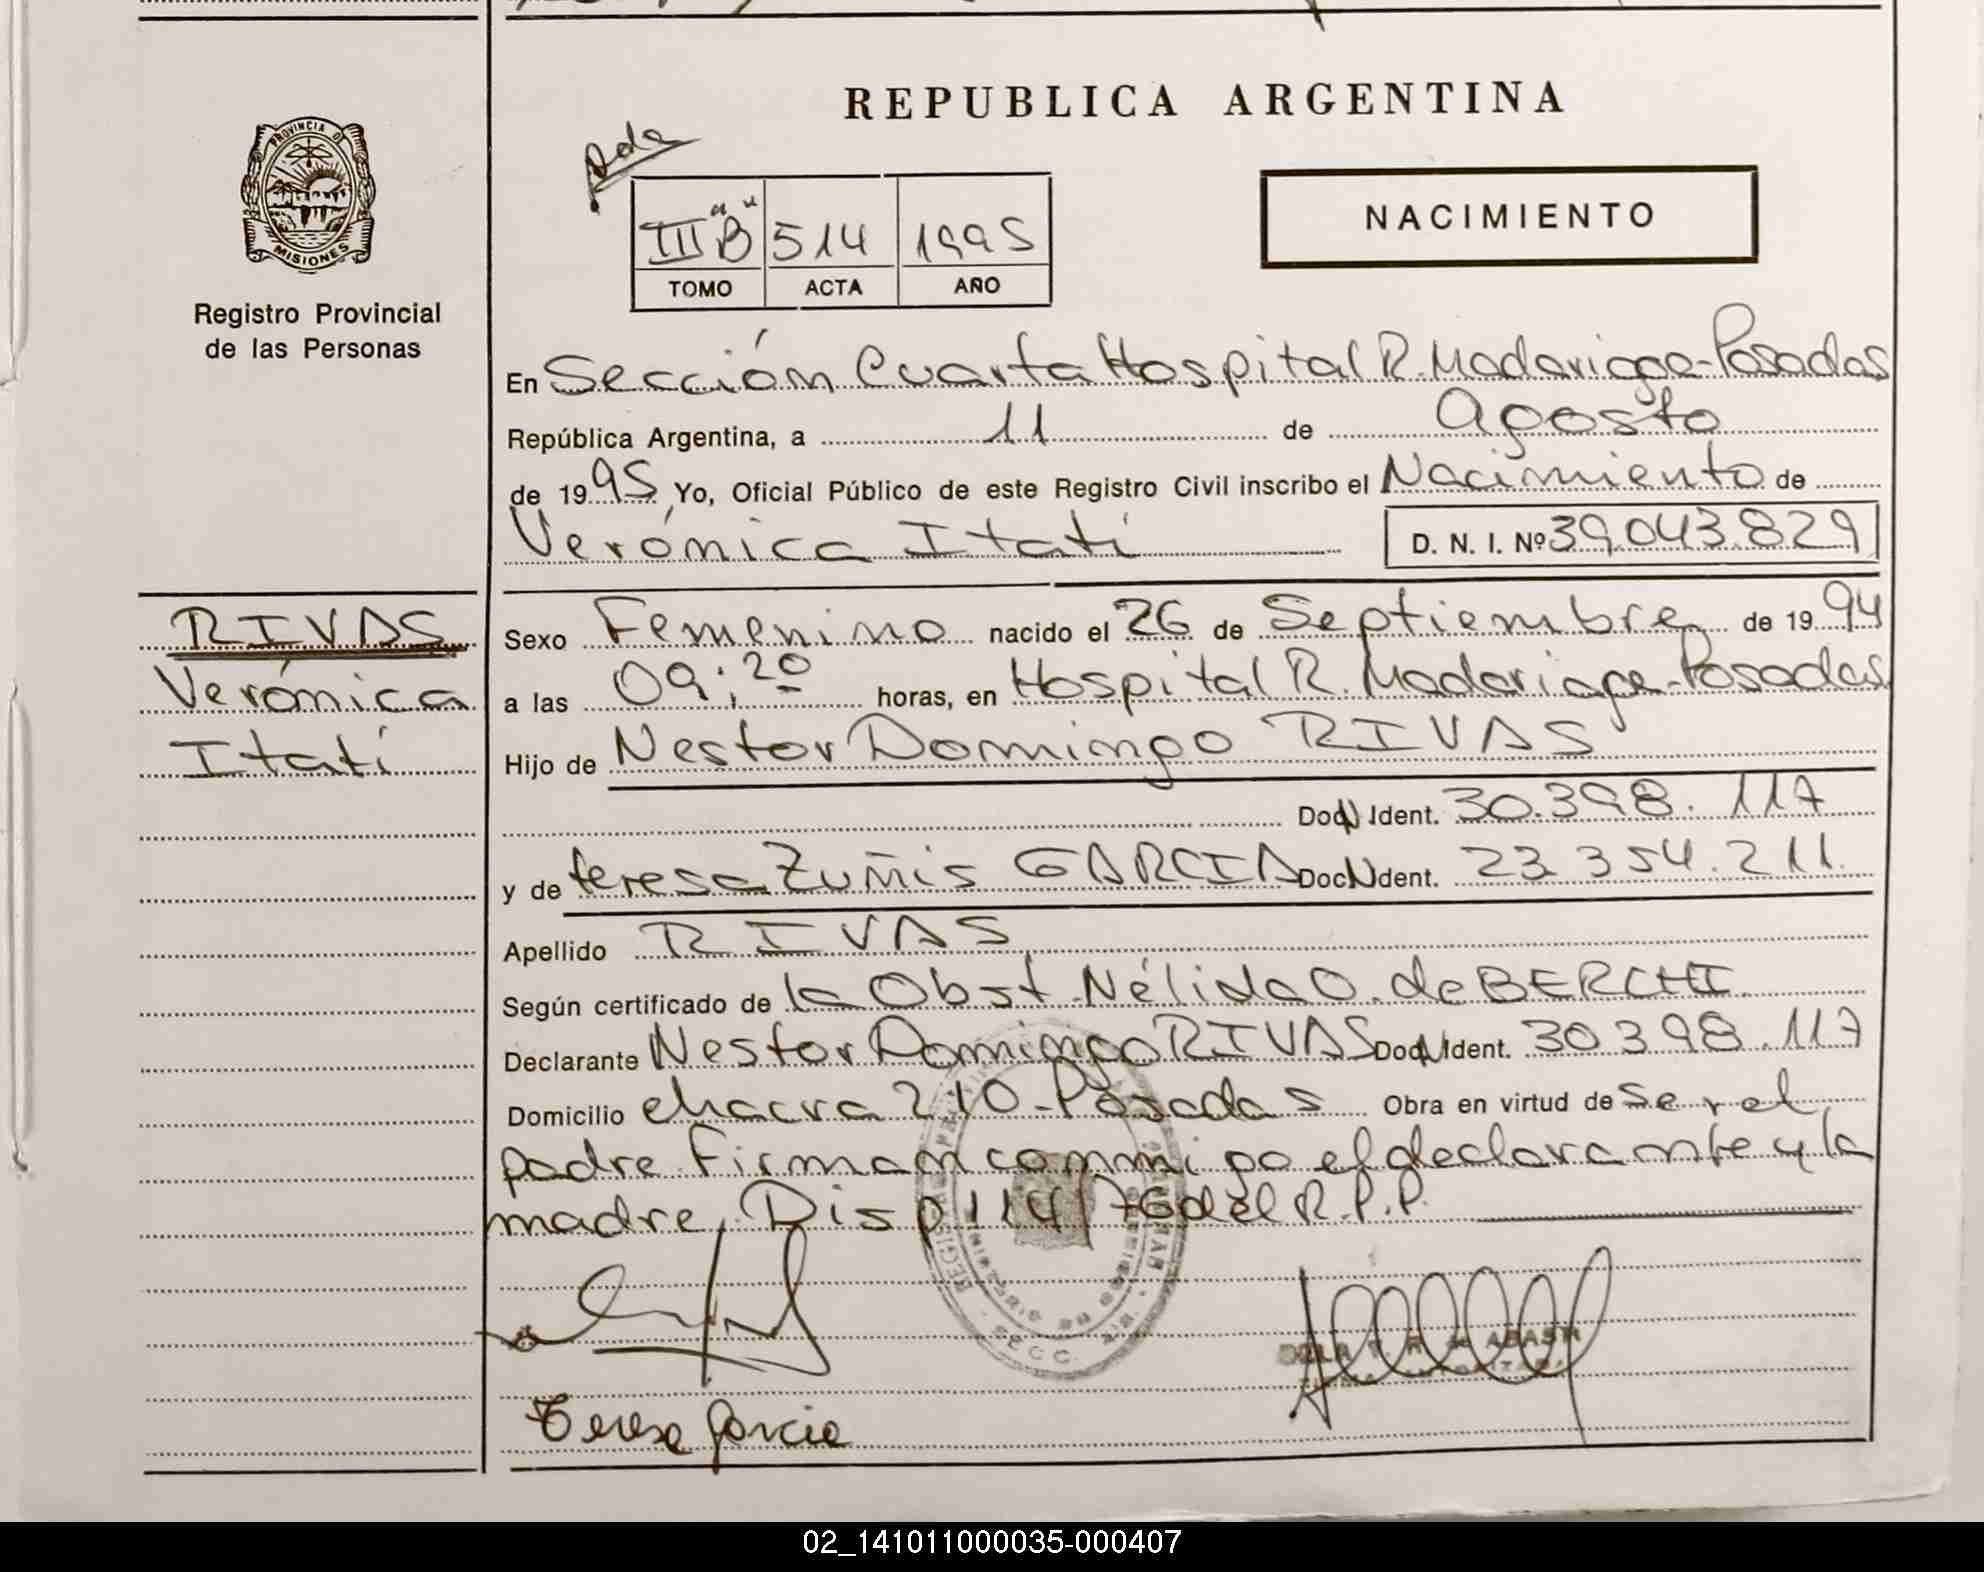 REPUBLICA ARGENTINA
PROVINCIA DE
MISIONES
Registro Provincial
de las Personas
III "B" 514 1995
TOMO ACTA AÑO
NACIMIENTO
En Sección Cuarta Hospital R. Madariaga-Posadas
República Argentina, a 11 de Agosto
de 1995 Yo, Oficial Público de este Registro Civil inscribo el Nacimiento de
Verónica Itatí D. N. I. Nº 39.043.829
RIVAS
Verónica
Itatí
Sexo Femenino nacido el 26 de Septiembre de 1994
a las 09:20 horas, en Hospital R. Madariaga-Posadas
Hijo de Nestor Domingo RIVAS
Doc N Ident. 30.398.117
y de teresa Zuñis GARCIA Doc N Ident. 23.354.211
Apellido RIVAS
Según certificado de la Obst. Nélida O. de BERCHI
Declarante Nestor Domingo RIVAS Doc N Ident. 30.398.117
Domicilio chacra 210-Posadas Obra en virtud de ser el
padre. Firman conmigo el declarante y la
madre, Disp 114/76 del R.P.P.
Teresa Garcia
02_141011000035-000407